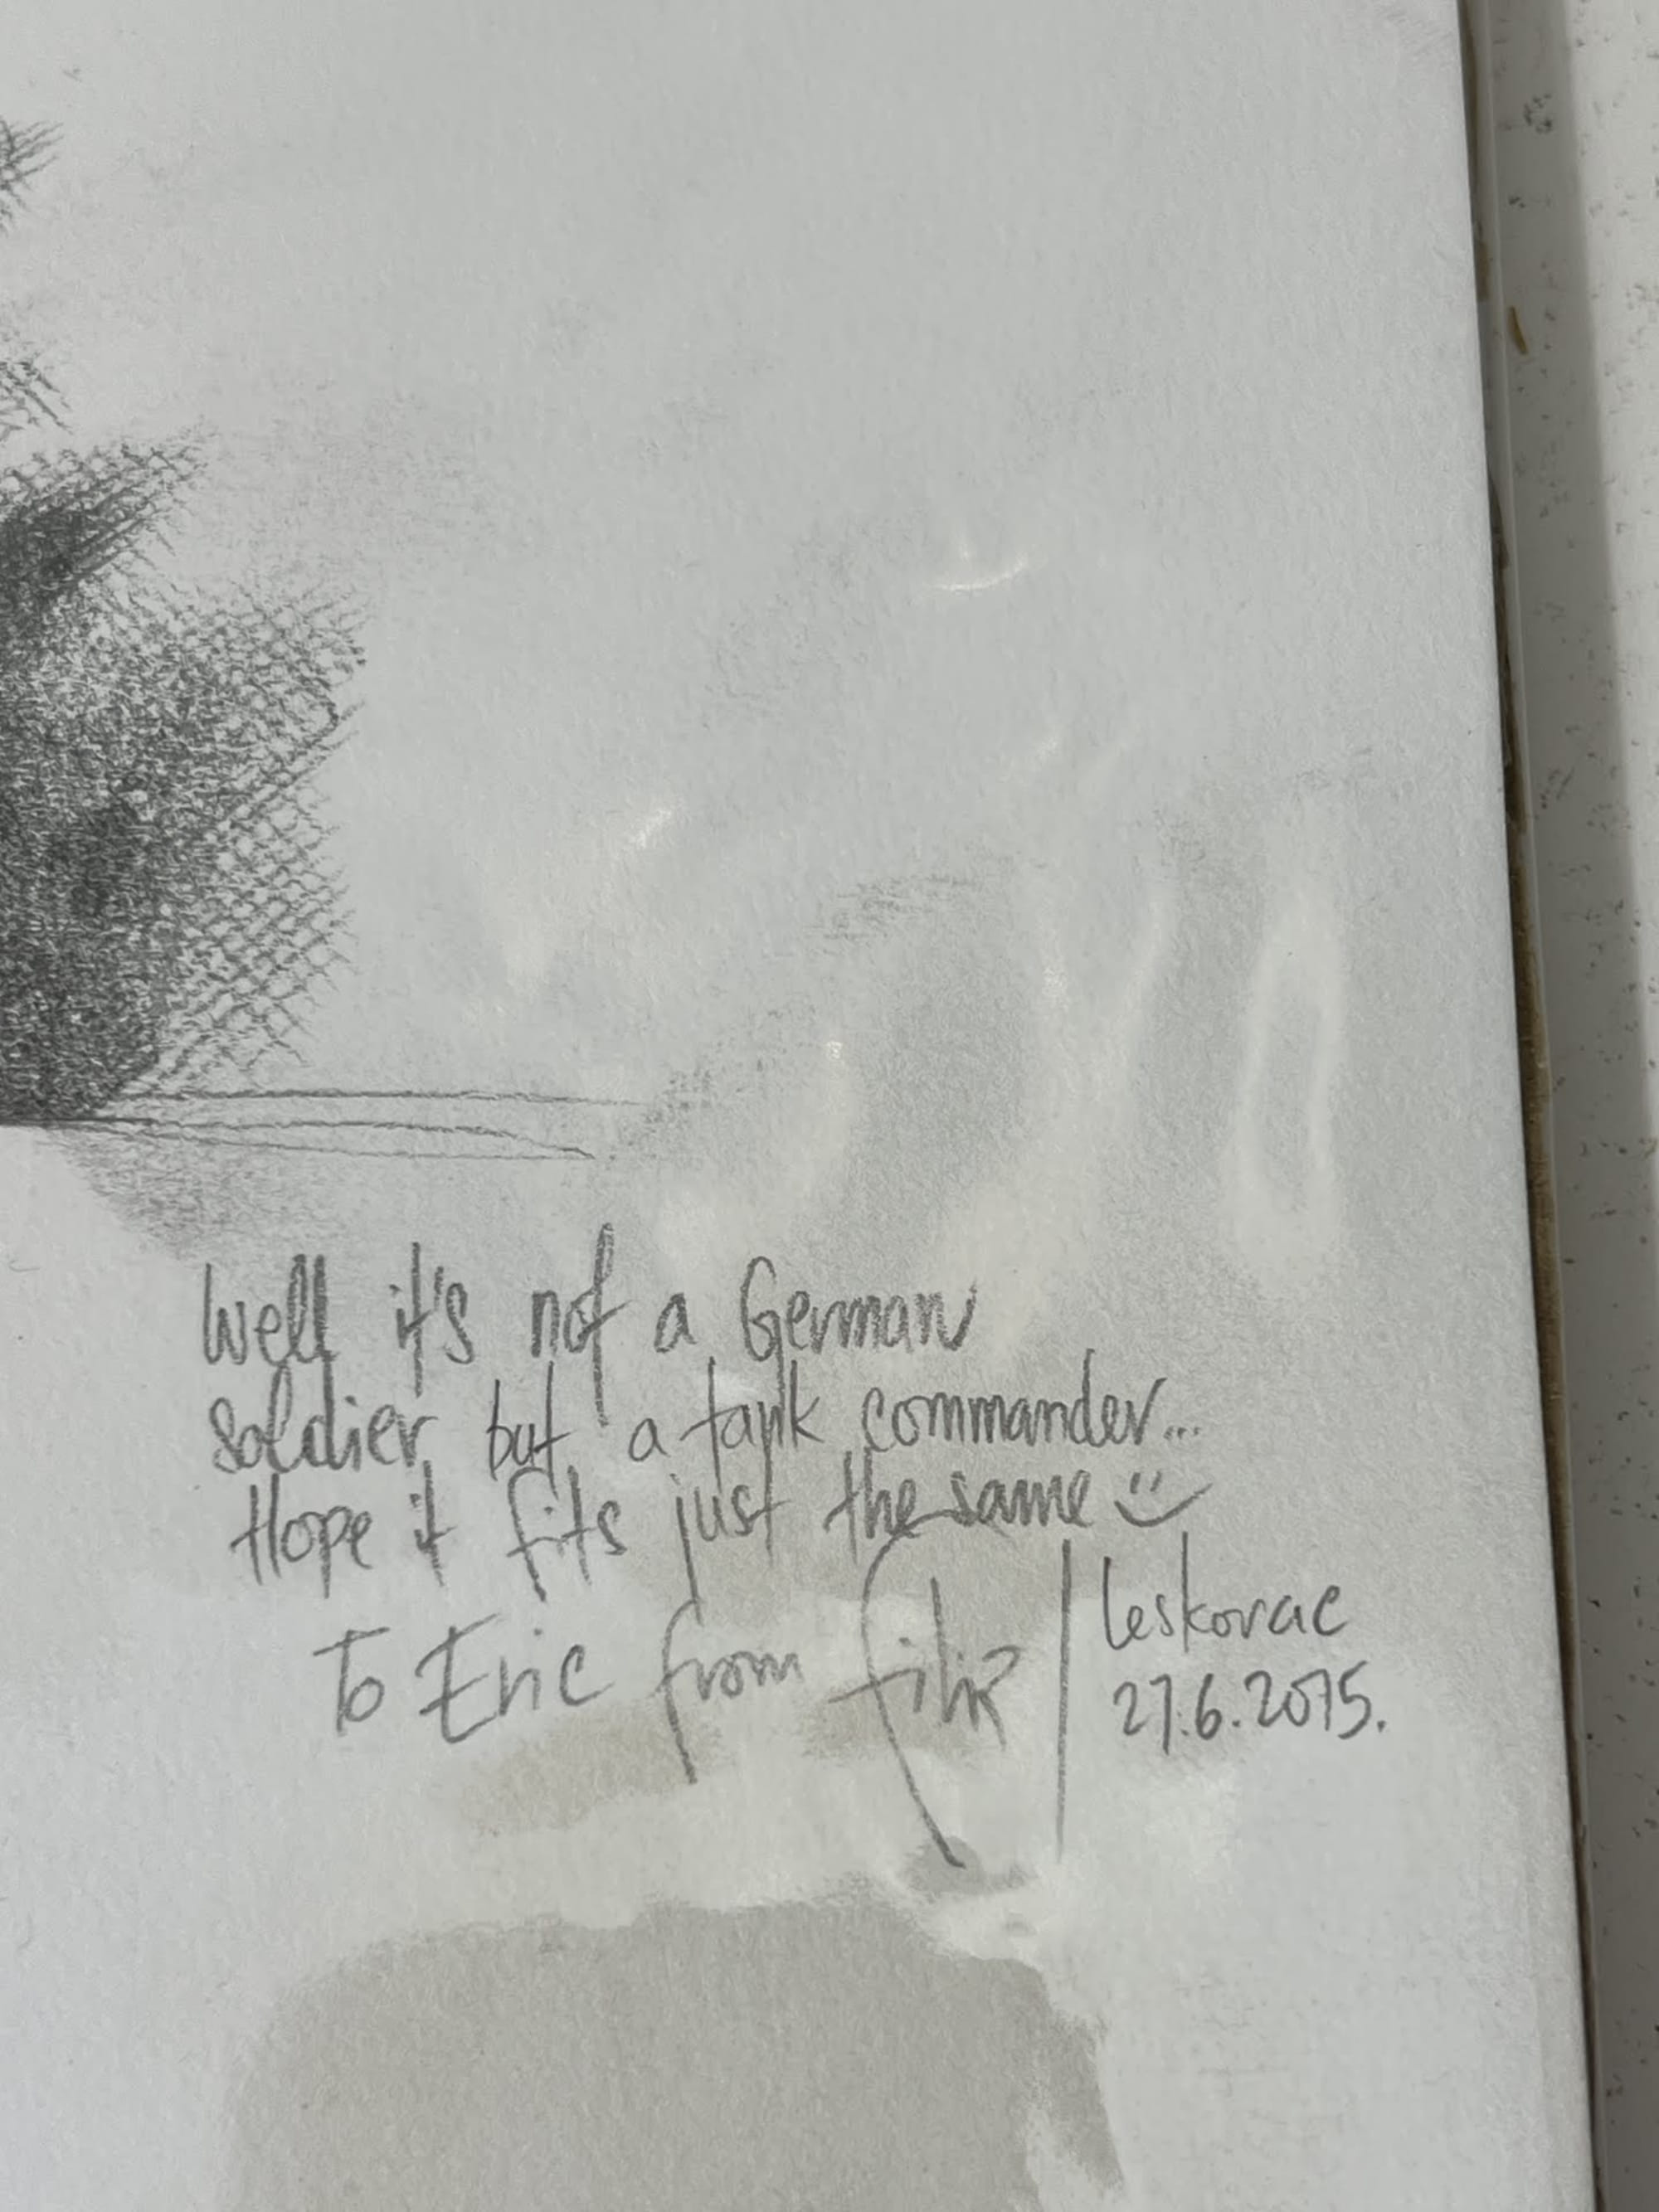 Well it's not a German
soldier but a tank commander...
Hope it fits just the same :)
To Eric from Filip | Leskovac
27.6.2015.